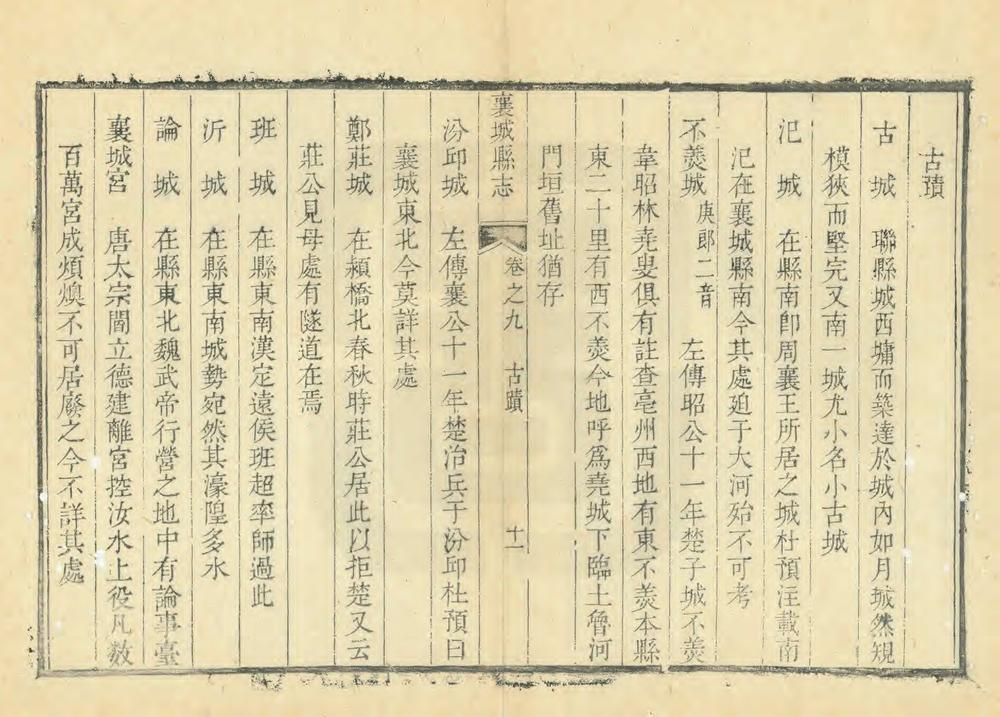 古蹟
古城 聯縣城西墉而築達於城內如月城然規
模狹而堅完又南一城尤小名小古城
氾城 在縣南卽周襄王所居之城杜預注載南
氾在襄城縣南今其處迫于大河殆不可考
不羮城 庚郎二音 左傳昭公十一年楚子城不羮
韋昭林堯叟俱有註查亳州西地有東不羮本縣
東二十里有西不羮今地呼爲堯城下臨土魯河
門垣舊址猶存
襄城縣志 卷之九 古蹟 十一
汾邱城 左傳襄公十一年楚治兵于汾邱杜預曰
襄城東北今莫詳其處
鄭莊城 在潁橋北春秋時莊公居此以拒楚又云
莊公見母處有隧道在焉
班城 在縣東南漢定遠侯班超率師過此
沂城 在縣東南城勢宛然其濠隍多水
論城 在縣東北魏武帝行營之地中有論事臺
襄城宮 唐太宗閻立德建離宮控汝水上役凡数
百萬宮成煩燠不可居廢之今不詳其處